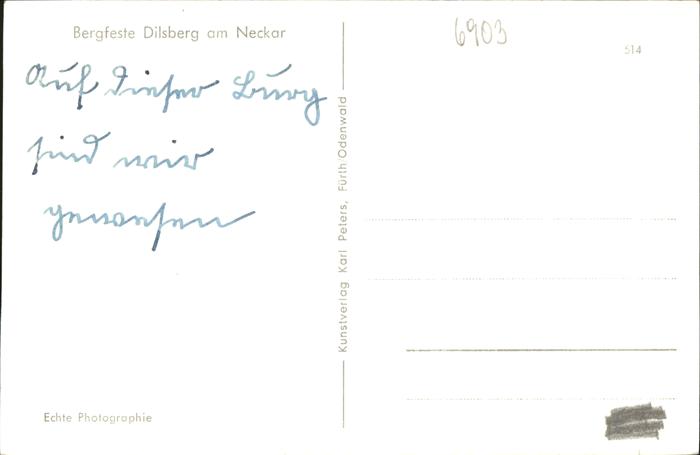 Bergfeste Dilsberg am Neckar
6903
514
Auf dieser Burg
sind wir
gewesen
Kunstverlag Karl Peters, Fürth/Odenwald
Echte Photographie